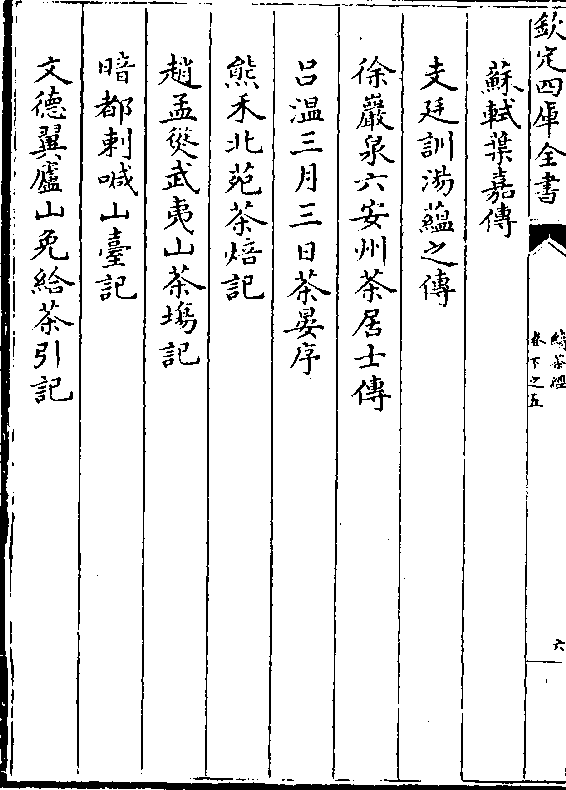 欽定四庫全書
續茶經
卷下之五
六
蘇軾葉嘉傳
支廷訓湯蘊之傳
徐巖泉六安州茶居士傳
吕温三月三日茶宴序
熊禾北苑茶焙記
趙孟㷧武夷山茶塲記
暗都剌喊山臺記
文德翼廬山免給茶引記